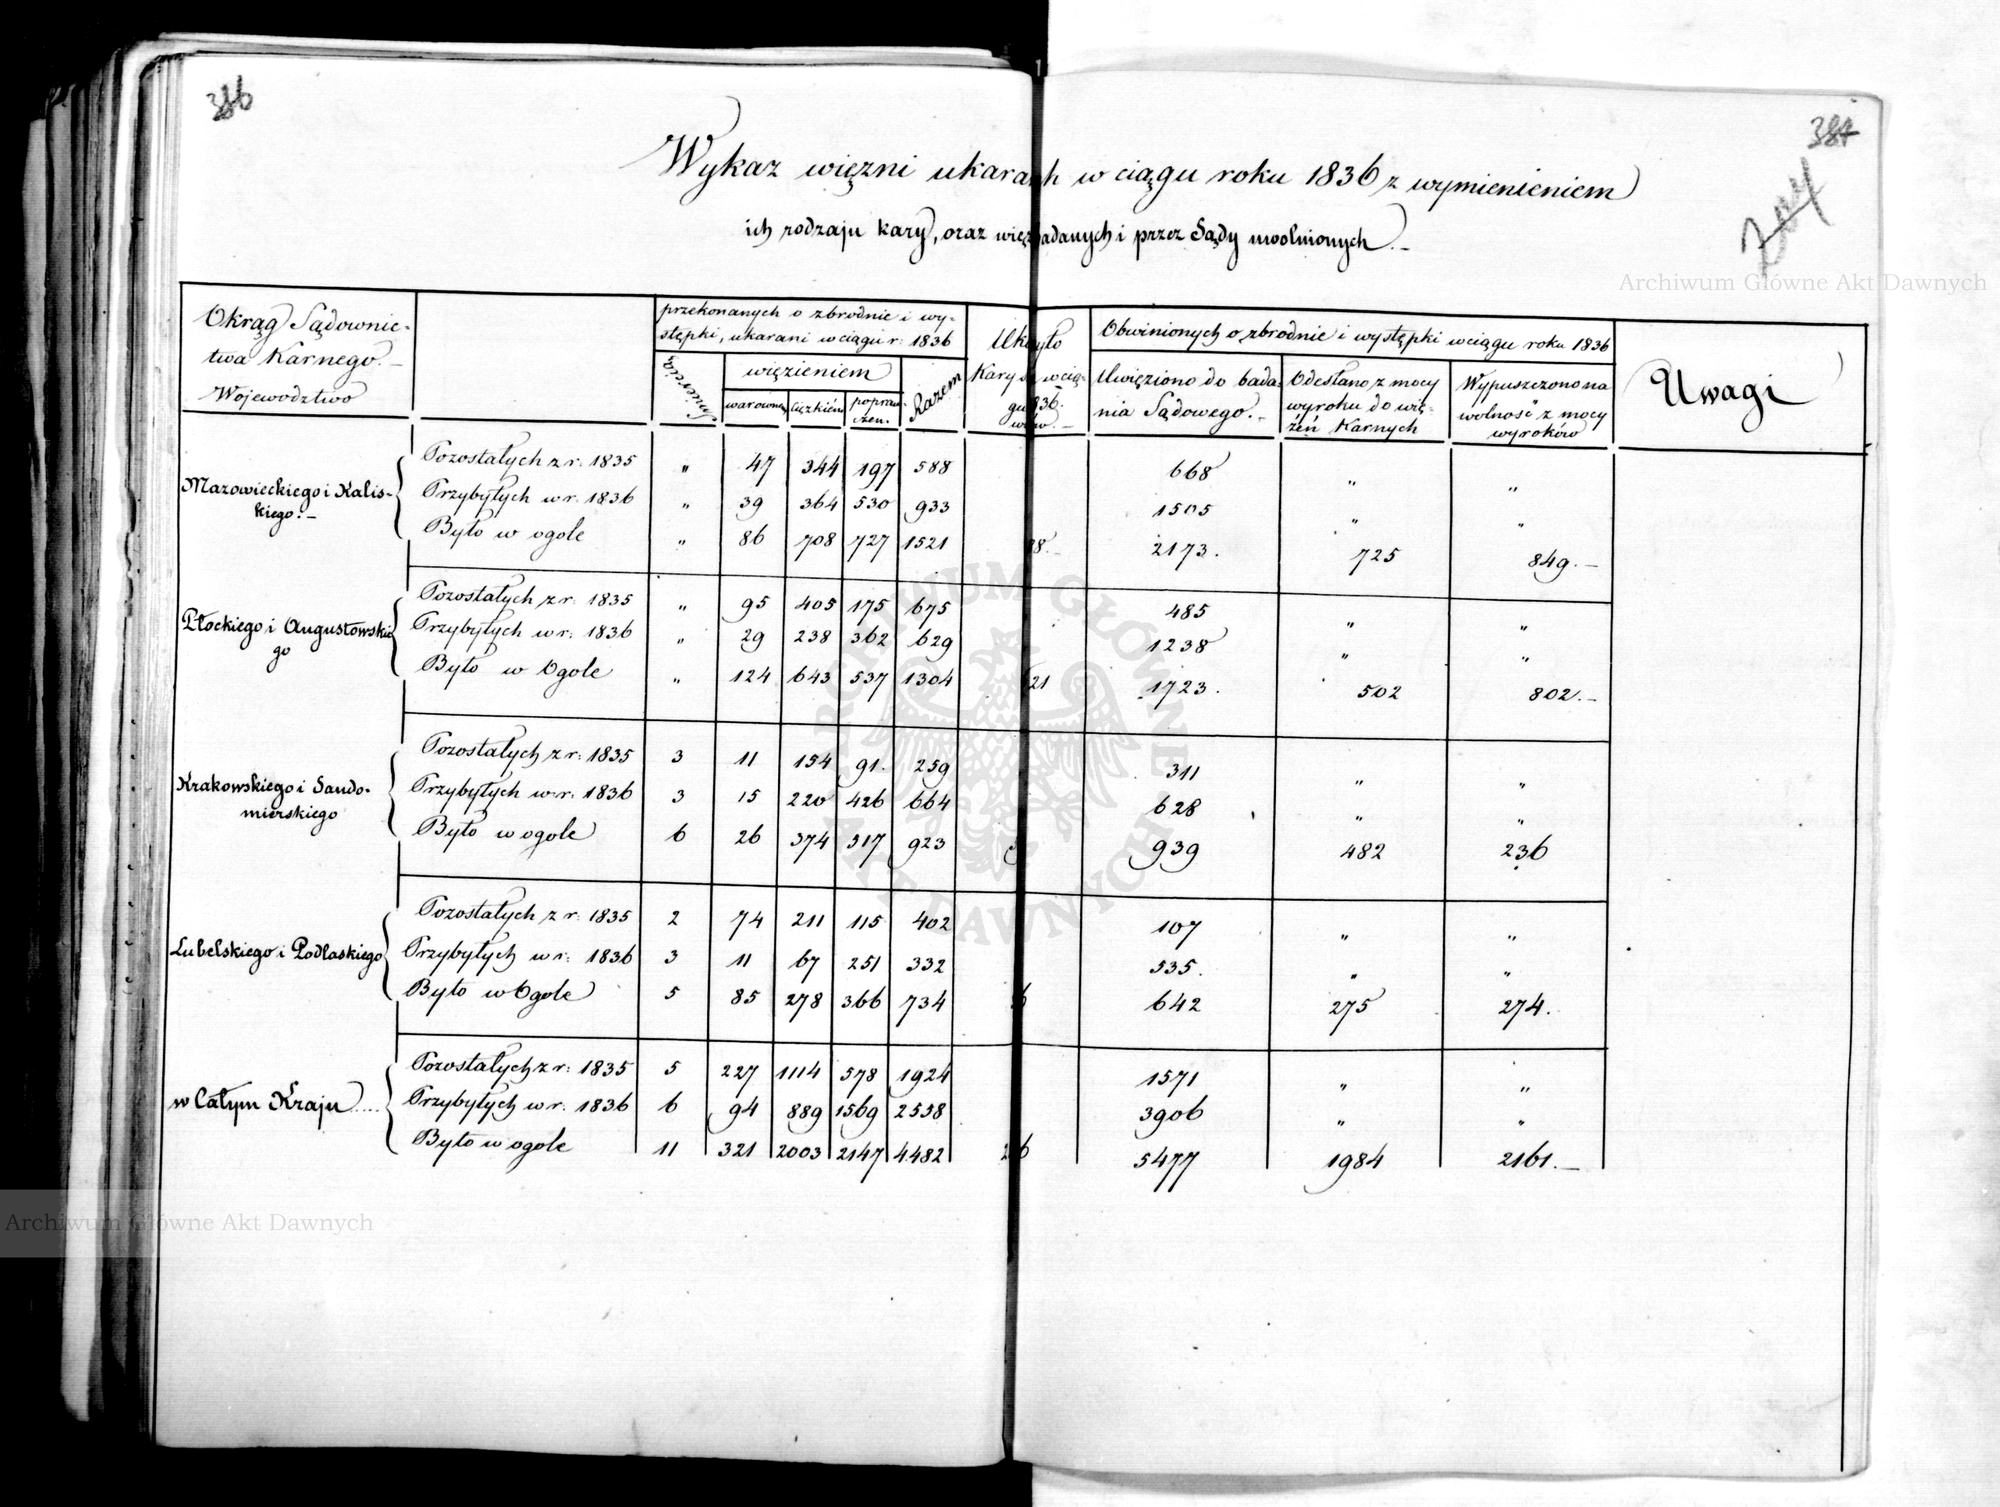 386
387
Wykaz więzni ukaranych w ciągu roku 1836 z wymienieniem
ich rodzaju kary, oraz więz badanych i przez Sądy uwolnionych.—
Archiwum Główne Akt Dawnych
Okrąg Sądownic-
twa Karnego.—
Województwo
przekonanych o zbrodnie i wy-
stępki, ukarani w ciągu r: 1836
Śmiercią
więzieniem
warowném
ciężkiém
popraw-
czem.
Razem
Kary w cią-
gu 1836.
Obwinionych o zbrodnie i występki w ciągu roku 1836
Uwięziono do bada-
nia Sądowego.—
Odesłano z mocy
wyroku do wię-
zień Karnych
Wypuszczono na
wolność z mocy
wyroków
Uwagi
Mazowieckiego i Kalis-
kiego.—
Pozostałych z r: 1835 " 47 344 197 588 668 " "
Przybyłych w r: 1836 " 39 364 530 933 1505 " "
Było w ogole " 86 708 727 1521 2173. 725 849.—
Płockiego i Augustowskie
go
Pozostałych z r: 1835 " 95 405 175 675 485 " "
Przybyłych w r: 1836 " 29 238 362 629 1238 " "
Było w Ogole " 124 643 537 1304 1723. 502 802.—
Krakowskiego i Sando-
mierskiego
Pozostałych z r: 1835 3 11 154 91. 259 311 " "
Przybyłych w r: 1836 3 15 220 426 664 628 " "
Było w ogole 6 26 374 517 923 939 482 236
Lubelskiego i Podlaskiego
Pozostałych z r: 1835 2 74 211 115 402 107 " "
Przybyłych w r: 1836 3 11 67 251 332 535. " "
Było w Ogole 5 85 278 366 734 642 275 274.
w Całym Kraju....
Pozostałych z r: 1835 5 227 1114 578 1924 1571 " "
Przybyłych w r: 1836 6 94 889 1569 2558 3906 " "
Było w ogole 11 321 2003 2147 4482 5477 1984 2161.—
ARCHIWUM GŁÓWNE AKT DAWNYCH
Archiwum Główne Akt Dawnych